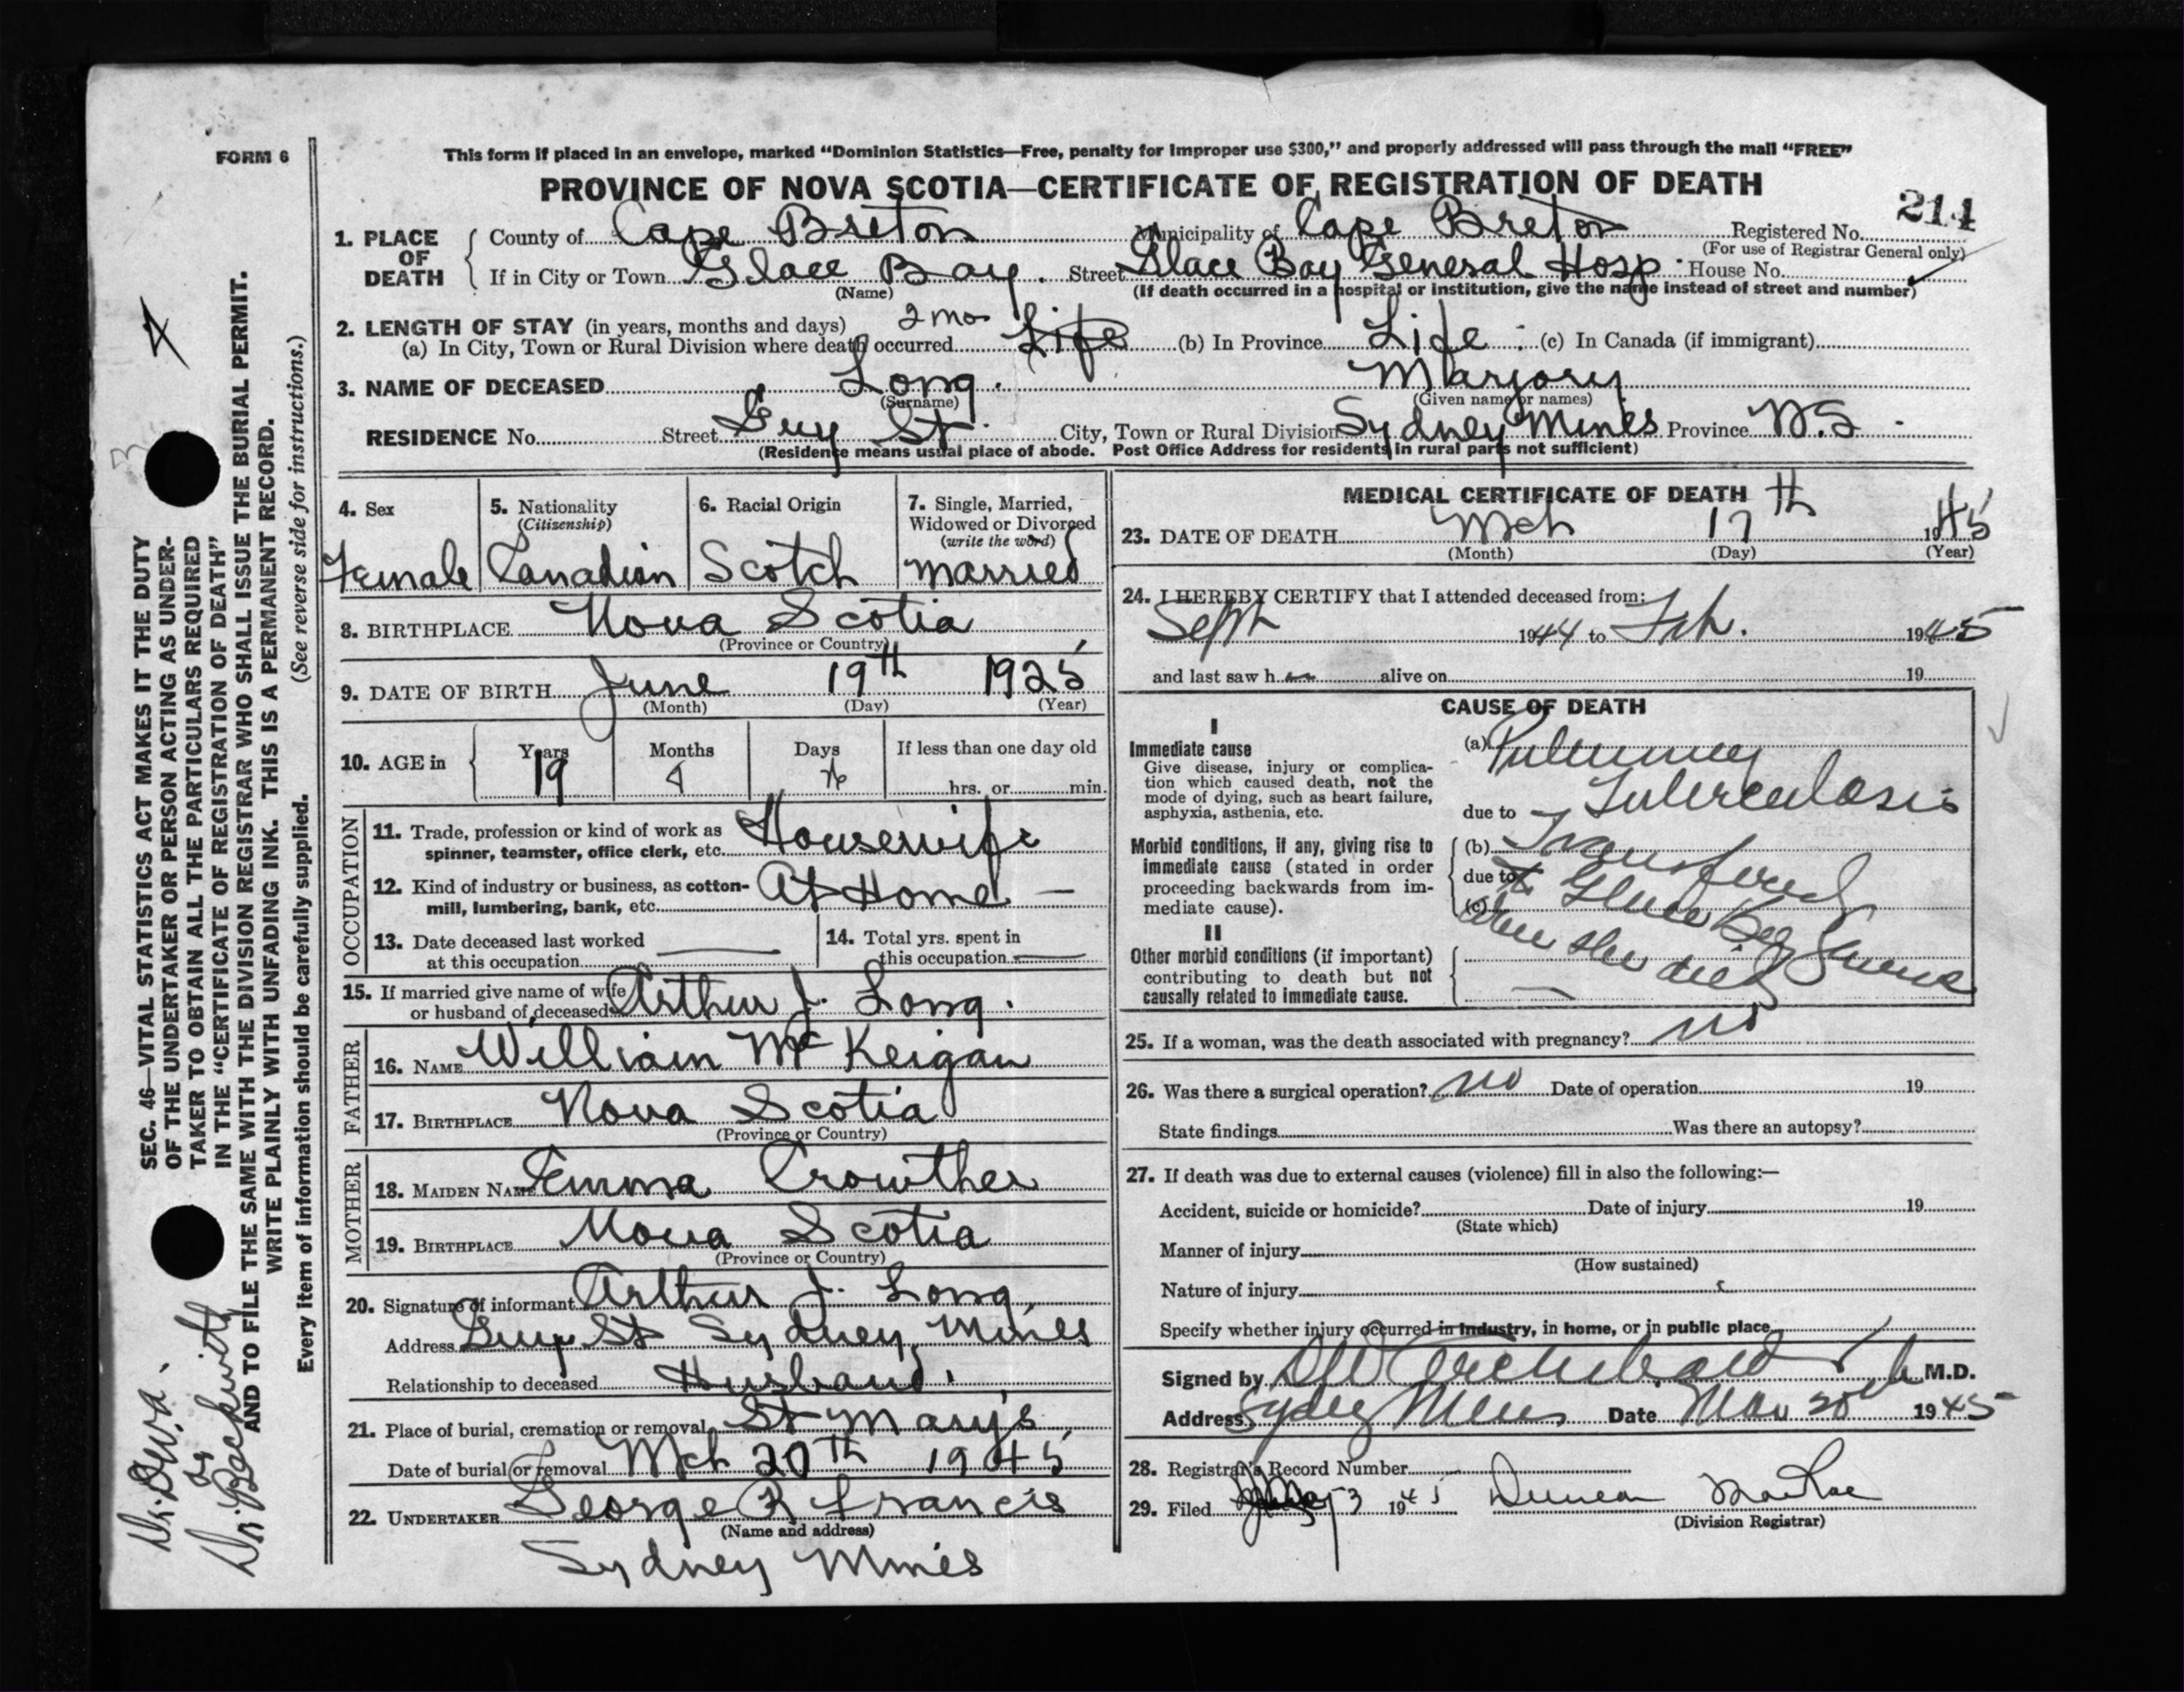 FORM 6
This form if placed in an envelope, marked “Dominion Statistics—Free, penalty for improper use $300,” and properly addressed will pass through the mail “FREE”
PROVINCE OF NOVA SCOTIA—CERTIFICATE OF REGISTRATION OF DEATH
214
1. PLACE OF DEATH County of Cape Breton Municipality of Cape Breton Registered No.
(For use of Registrar General only)
If in City or Town Glace Bay. Street Glace Bay General Hosp. House No.
(Name) (If death occurred in a hospital or institution, give the name instead of street and number)
2. LENGTH OF STAY (in years, months and days) 2 mos
(a) In City, Town or Rural Division where death occurred Life (b) In Province Life : (c) In Canada (if immigrant)
3. NAME OF DECEASED Long. Marjory
(Surname) (Given name or names)
RESIDENCE No. Street Guy St. City, Town or Rural Division Sydney Mines Province N.S.
(Residence means usual place of abode. Post Office Address for residents in rural parts not sufficient)
4. Sex Female
5. Nationality (Citizenship) Canadian
6. Racial Origin Scotch
7. Single, Married, Widowed or Divorced (write the word) Married
8. BIRTHPLACE Nova Scotia
(Province or Country)
9. DATE OF BIRTH June 19th 1925
(Month) (Day) (Year)
10. AGE in Years 19 Months Days If less than one day old
hrs. or min.
OCCUPATION
11. Trade, profession or kind of work as spinner, teamster, office clerk, etc. Housewife
12. Kind of industry or business, as cotton-mill, lumbering, bank, etc. At Home —
13. Date deceased last worked at this occupation —
14. Total yrs. spent in this occupation —
15. If married give name of wife or husband of deceased Arthur J. Long.
FATHER
16. NAME William McKeigan
17. BIRTHPLACE Nova Scotia
(Province or Country)
MOTHER
18. MAIDEN NAME Emma Crowther
19. BIRTHPLACE Nova Scotia
(Province or Country)
20. Signature of informant Arthur J. Long
Address Guy St Sydney Mines
Relationship to deceased Husband.
21. Place of burial, cremation or removal St Mary's
Date of burial or removal Mch 20th 1945
22. UNDERTAKER George R Francis
(Name and address)
Sydney Mines
MEDICAL CERTIFICATE OF DEATH
23. DATE OF DEATH Mch 17th 1945
(Month) (Day) (Year)
24. I HEREBY CERTIFY that I attended deceased from:
Sept 1944 to Feb. 1945
and last saw her alive on 19
CAUSE OF DEATH
I
Immediate cause
Give disease, injury or complication which caused death, not the mode of dying, such as heart failure, asphyxia, asthenia, etc.
(a) Pulmonary
due to Tuberculosis
Morbid conditions, if any, giving rise to immediate cause (stated in order proceeding backwards from immediate cause).
(b) Transfered
due to to Glace Bay General
(c) where she died
II
Other morbid conditions (if important) contributing to death but not causally related to immediate cause.
—
25. If a woman, was the death associated with pregnancy? no
26. Was there a surgical operation? no Date of operation 19
State findings Was there an autopsy?
27. If death was due to external causes (violence) fill in also the following:—
Accident, suicide or homicide? Date of injury 19
(State which)
Manner of injury
(How sustained)
Nature of injury
Specify whether injury occurred in industry, in home, or in public place
Signed by DW Archibald M.D.
Address Sydney Mines Date Mar 20th 1945
28. Registrar's Record Number
29. Filed 3 1945 Duncan MacRae
(Division Registrar)
SEC. 46—VITAL STATISTICS ACT MAKES IT THE DUTY
OF THE UNDERTAKER OR PERSON ACTING AS UNDER-
TAKER TO OBTAIN ALL THE PARTICULARS REQUIRED
IN THE “CERTIFICATE OF REGISTRATION OF DEATH”
AND TO FILE THE SAME WITH THE DIVISION REGISTRAR WHO SHALL ISSUE THE BURIAL PERMIT.
WRITE PLAINLY WITH UNFADING INK. THIS IS A PERMANENT RECORD.
Every item of information should be carefully supplied. (See reverse side for instructions.)
Dr. D.W.A.
Dr. Beckwith